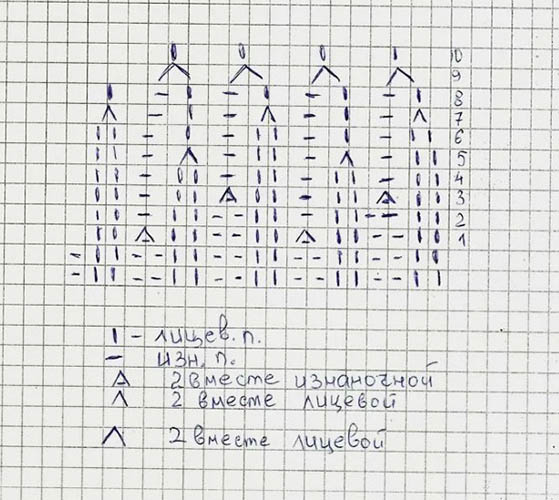 10
9
8
7
6
5
4
3
2
1
I - лицев. п.
— изн. п.
2 вместе изнаночной
2 вместе лицевой
2 вместе лицевой